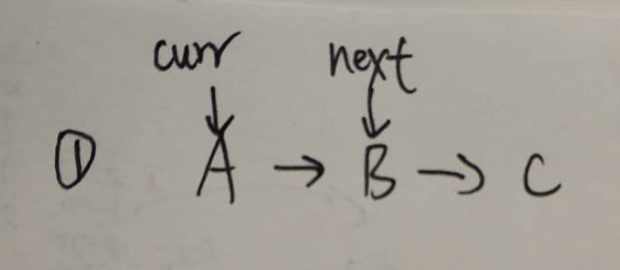 curr next
① A → B → C